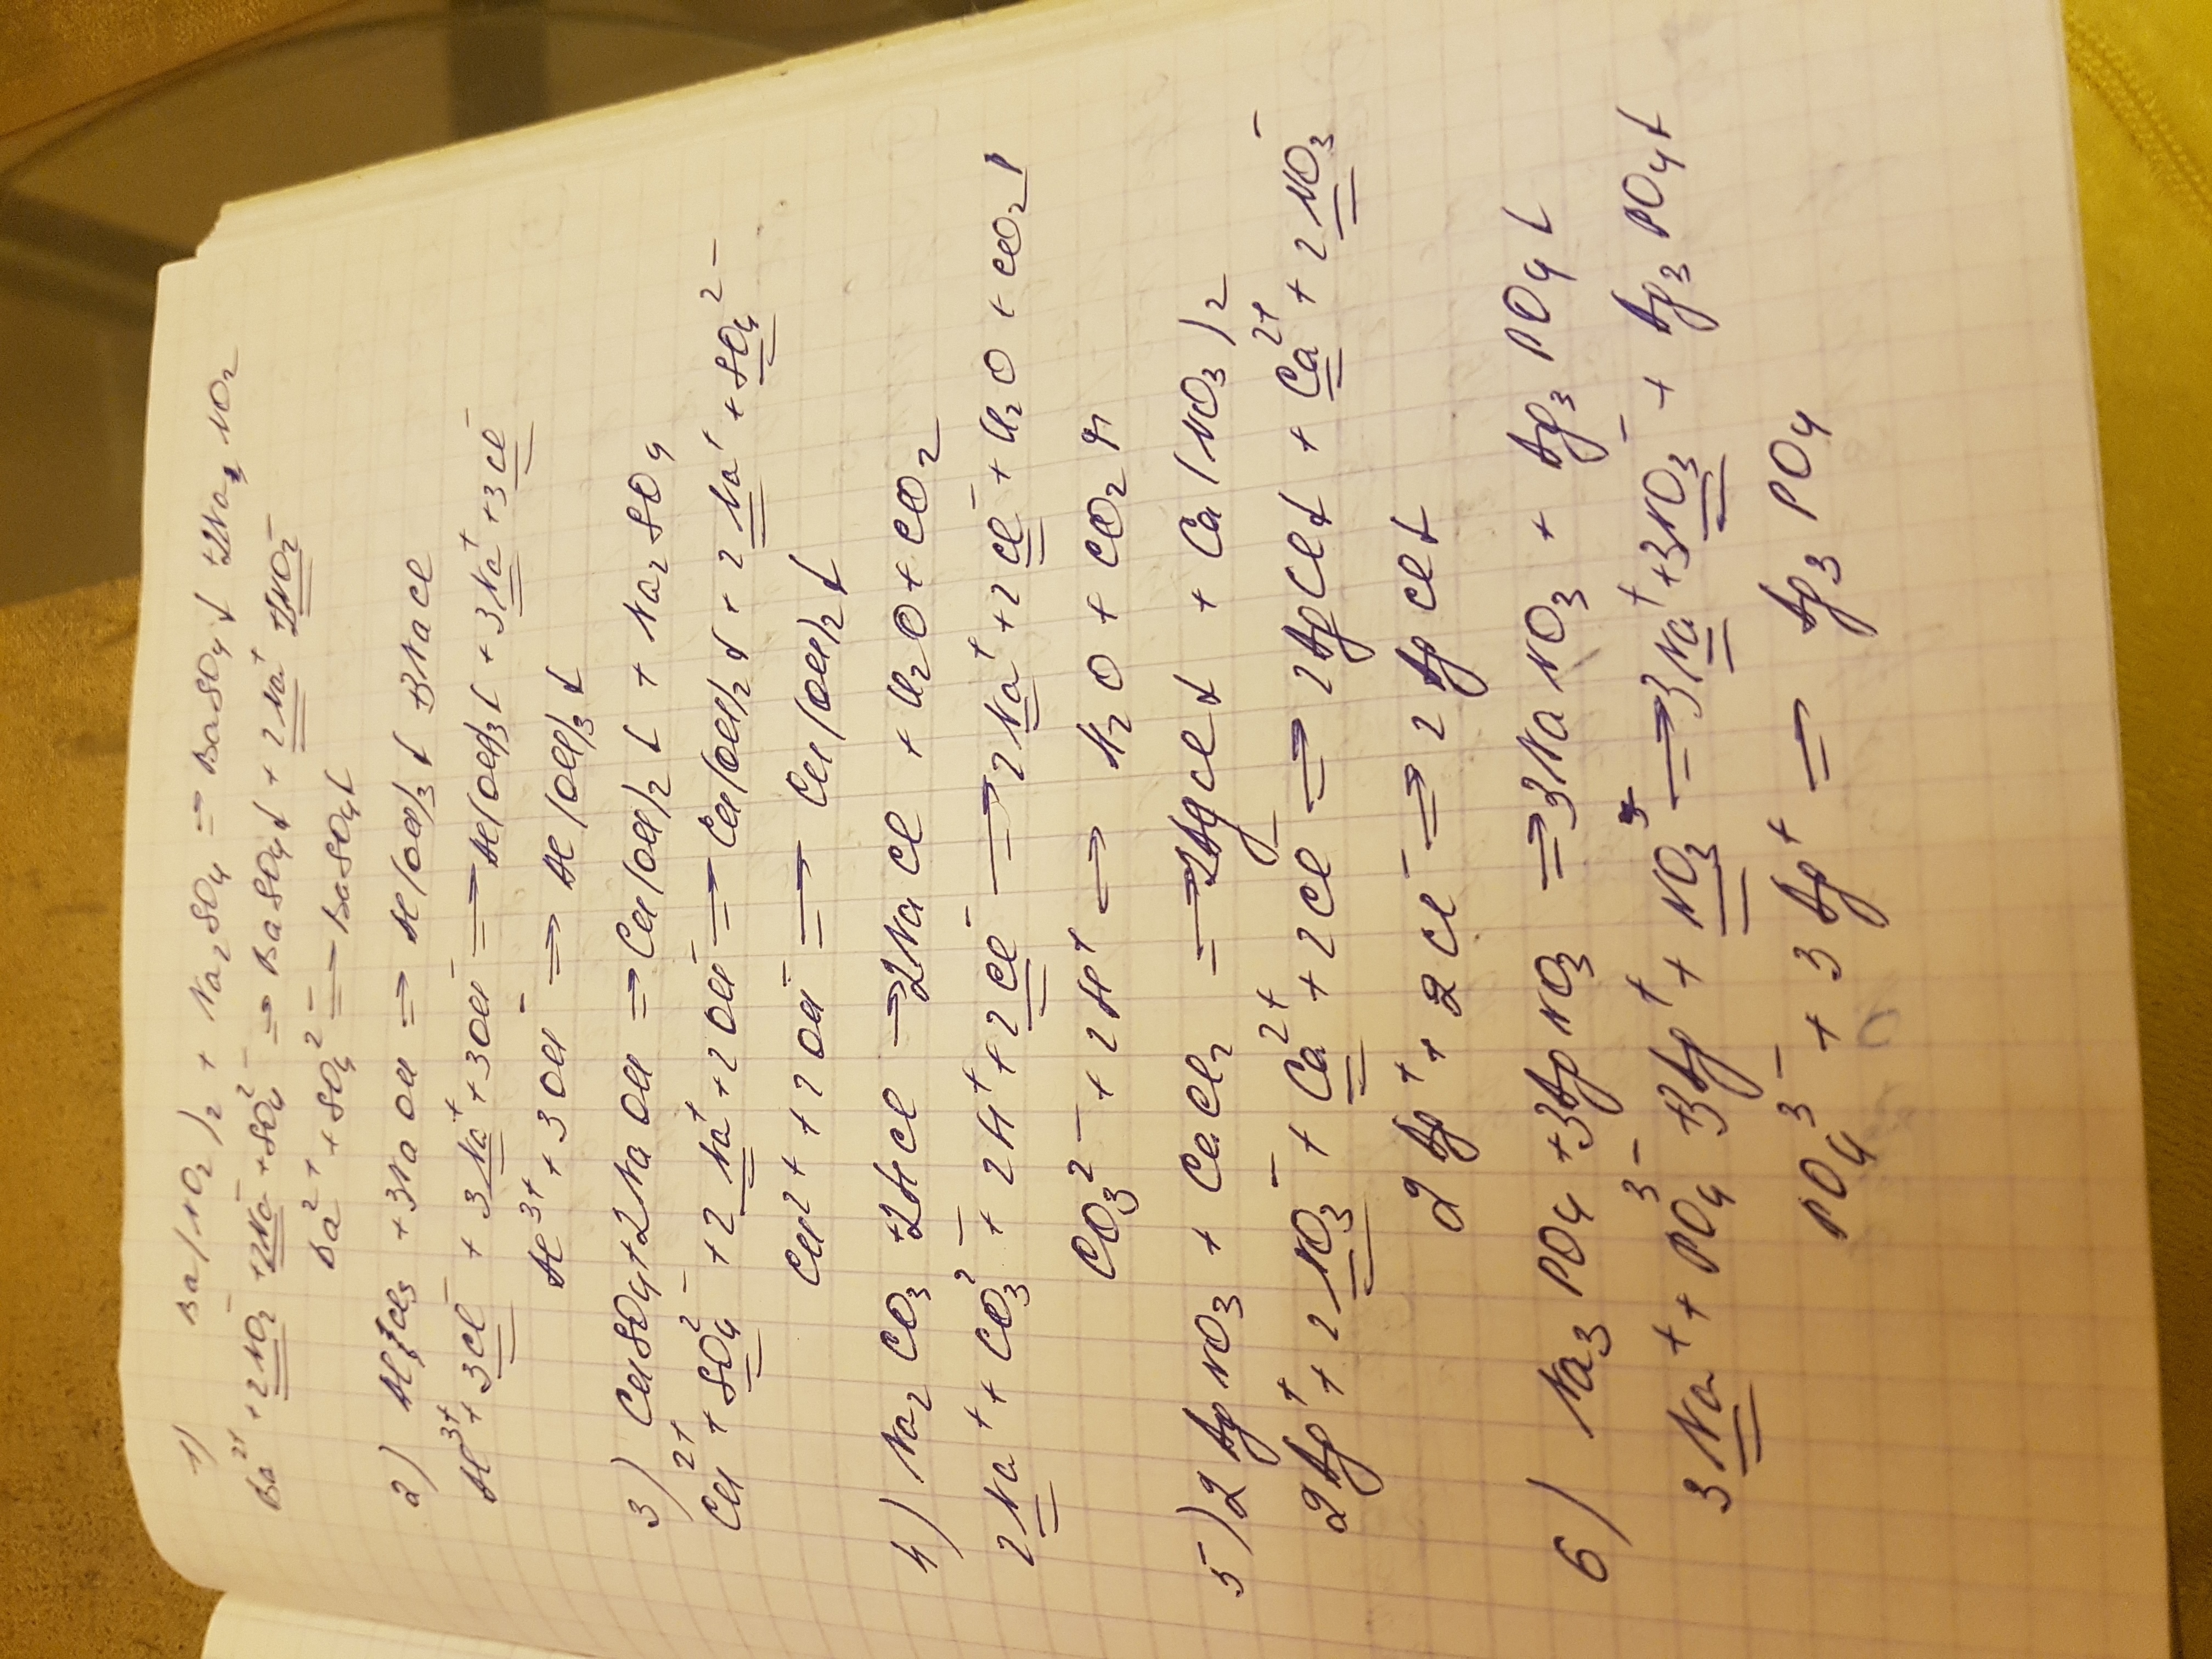 1) Ba(NO₂)₂ + Na₂SO₄ => BaSO₄↓ +2NaNO₂
Ba²⁺ + 2NO₂⁻ + 2Na⁻ + SO₄²⁻ => BaSO₄↓ + 2Na⁺ + 2NO₂⁻
Ba²⁺ + SO₄²⁻ => BaSO₄↓
2) AlCl₃ + 3NaOH => Al(OH)₃↓ + 3NaCl
Al³⁺ + 3Cl⁻ + 3Na⁺ + 3OH⁻ => Al(OH)₃↓ + 3Na⁺ + 3Cl⁻
Al³⁺ + 3OH⁻ => Al(OH)₃↓
3) CuSO₄ + 2NaOH => Cu(OH)₂↓ + Na₂SO₄
Cu²⁺ + SO₄²⁻ + 2Na⁺ + 2OH⁻ => Cu(OH)₂↓ + 2Na⁺ + SO₄²⁻
Cu²⁺ + 2OH⁻ => Cu(OH)₂↓
4) Na₂CO₃ + 2HCl => 2NaCl + H₂O + CO₂
2Na⁺ + CO₃²⁻ + 2H⁺ + 2Cl⁻ => 2Na⁺ + 2Cl⁻ + H₂O + CO₂↑
CO₃²⁻ + 2H⁺ => H₂O + CO₂↑
5) 2AgNO₃ + CaCl₂ => 2AgCl↓ + Ca(NO₃)₂
2Ag⁺ + 2NO₃⁻ + Ca²⁺ + 2Cl => 2AgCl↓ + Ca²⁺ + 2NO₃⁻
2Ag⁺ + 2Cl⁻ => 2AgCl↓
6) Na₃PO₄ + 3AgNO₃ => 3NaNO₃ + Ag₃PO₄↓
3Na⁺ + PO₄³⁻ + 3Ag⁺ + NO₃⁻ => 3Na⁺ + 3NO₃⁻ + Ag₃PO₄↓
PO₄³⁻ + 3Ag⁺ => Ag₃PO₄